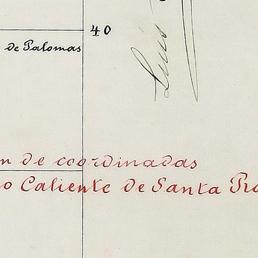 40
de Palomas
Luis
n de coordinadas
o Caliente de Santa Ro